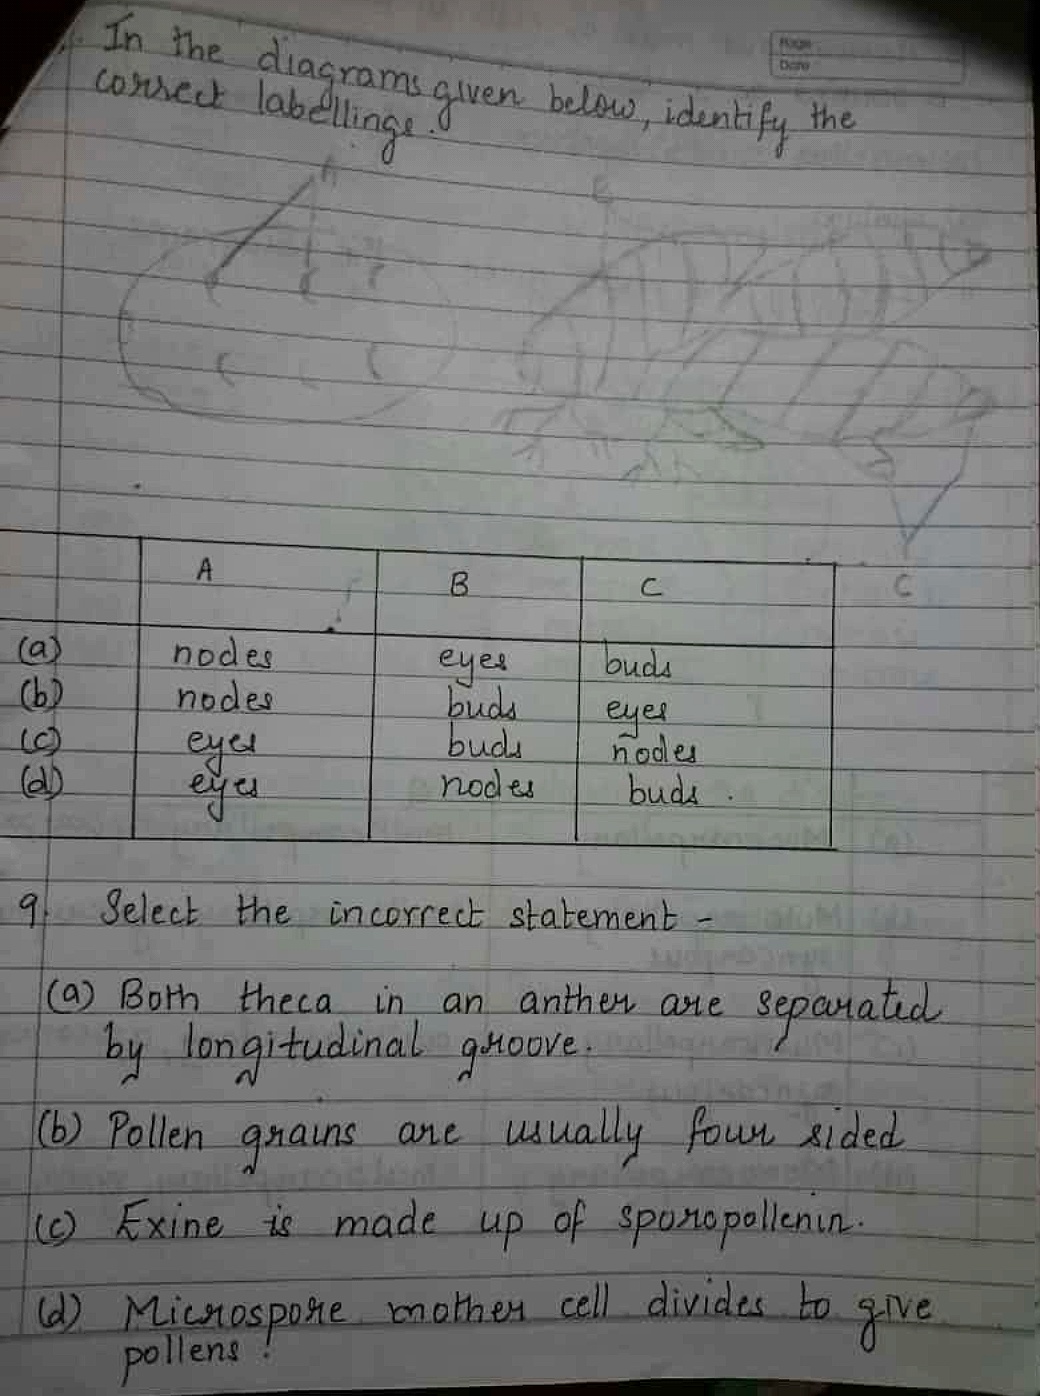 Page
Date
In the diagrams given below, identify the
correct labellings.
A
B
C
A B C
(a) nodes eyes buds
(b) nodes buds eyes
(c) eyes buds nodes
(d) eyes nodes buds.
9. Select the incorrect statement -
(a) Both theca in an anther are separated
by longitudinal groove.
(b) Pollen grains are usually four sided
(c) Exine is made up of sporopollenin.
(d) Microspore mother cell divides to give
pollens.